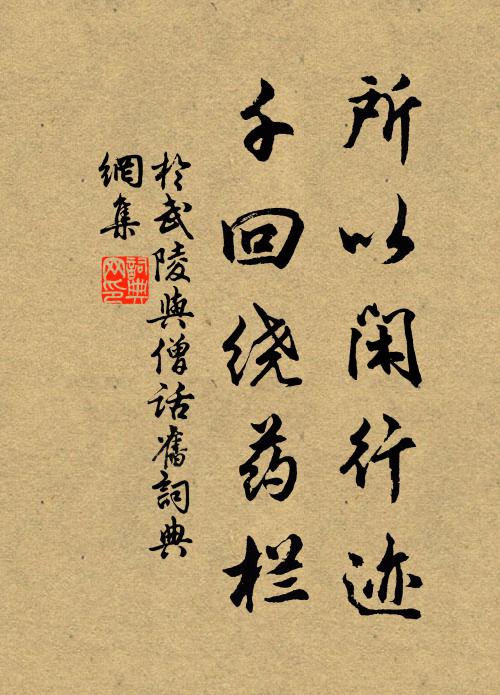 所以闲行迹
千回绕药栏
於武陵與僧話舊詞典
網集
詞典網印